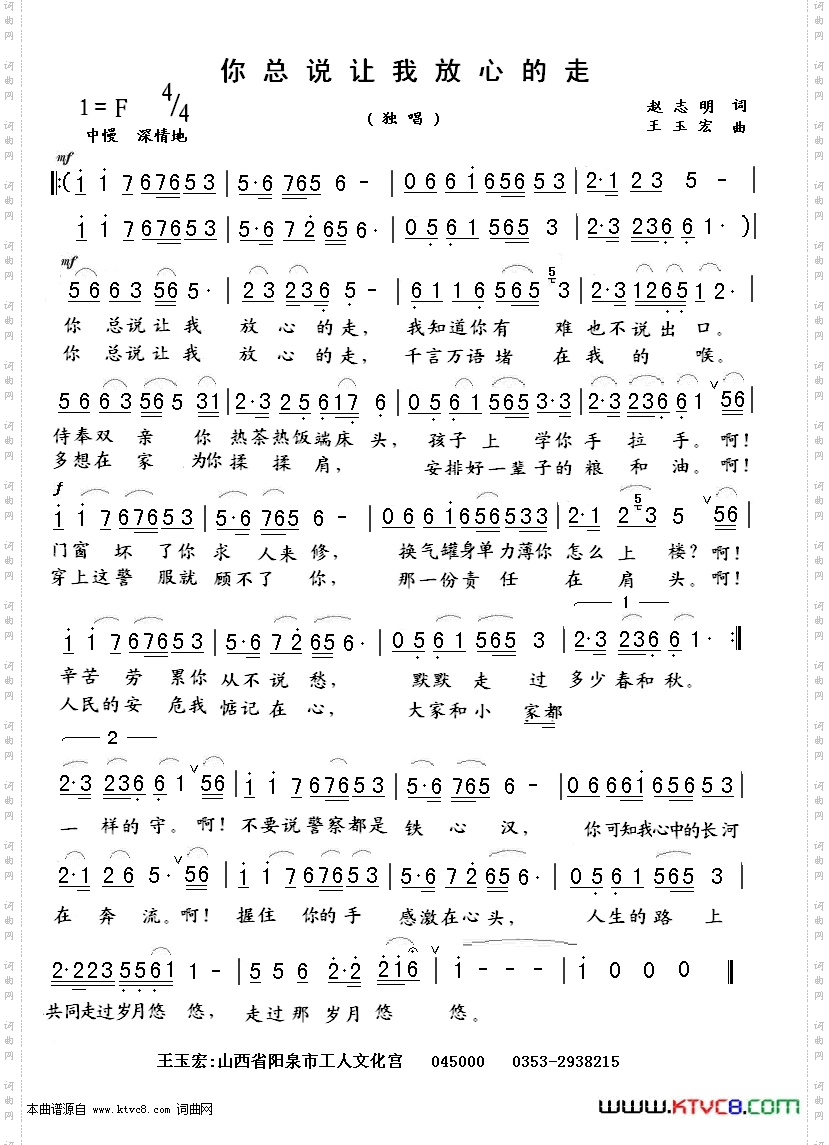 你总说让我放心的走
1=F 4/4
(独唱)
赵志明 词
中慢 深情地
王玉宏 曲
mf
‖:(i i 7 67653 | 5·6 765 6 - | 0 6 6 i 65653 | 2·1 2 3 5 - |
i i 7 67653 | 5·6 7 2 65 6· | 0 5 6 1 565 3 | 2·3 236 6 1· )|
mf
5 6 6 3 56 5· | 2 3 2 3 6 5 - | 6 1 1 6 565 5 3 | 2·3 1265 1 2· |
你 总说让我 放心的走, 我知道你有 难也不说出口。
你 总说让我 放心的走, 千言万语堵 在我的 喉。
5 6 6 3 56 5 31 | 2·3 2 5 617 6 | 0 5 6 1 565 3·3 | 2·3 236 61 56 |
侍奉双亲 你 热茶热饭端床头, 孩子上 学你手拉手。啊!
多想在家 为你揉揉肩, 安排好一辈子的粮和油。啊!
f
i i 7 67653 | 5·6 765 6 - | 0 6 6 i 6565 33 | 2·1 2 5 3 5 56 |
门窗坏了你求人来修, 换气罐身单力薄你怎么上楼?啊!
穿上这警服就顾不了你, 那一份责任在肩头。啊!
1
i i 7 67653 | 5·6 7 2 65 6· | 0 5 6 1 565 3 | 2·3 236 6 1· :‖
辛苦劳累你从不说愁, 默默走过多少春和秋。
人民的安危我惦记在心, 大家和小家都
2
2·3 236 6 1 56 | i i 7 67653 | 5·6 765 6 - | 0 6 66i 65653 |
一样的守。啊!不要说警察都是铁心汉, 你可知我心中的长河
2·1 2 6 5· 56 | i i 7 67653 | 5·6 7 2 65 6· | 0 5 6 1 565 3 |
在奔流。啊!握住你的手感激在心头, 人生的路上
2·223 5561 1 - | 5 5 6 2·2 2i6 | i - - - | i 0 0 0 ‖
共同走过岁月悠悠, 走过那岁月悠悠。
王玉宏:山西省阳泉市工人文化宫 045000 0353-2938215
本曲谱源自 www.ktvc8.com 词曲网
WWW.KTVC8.COM